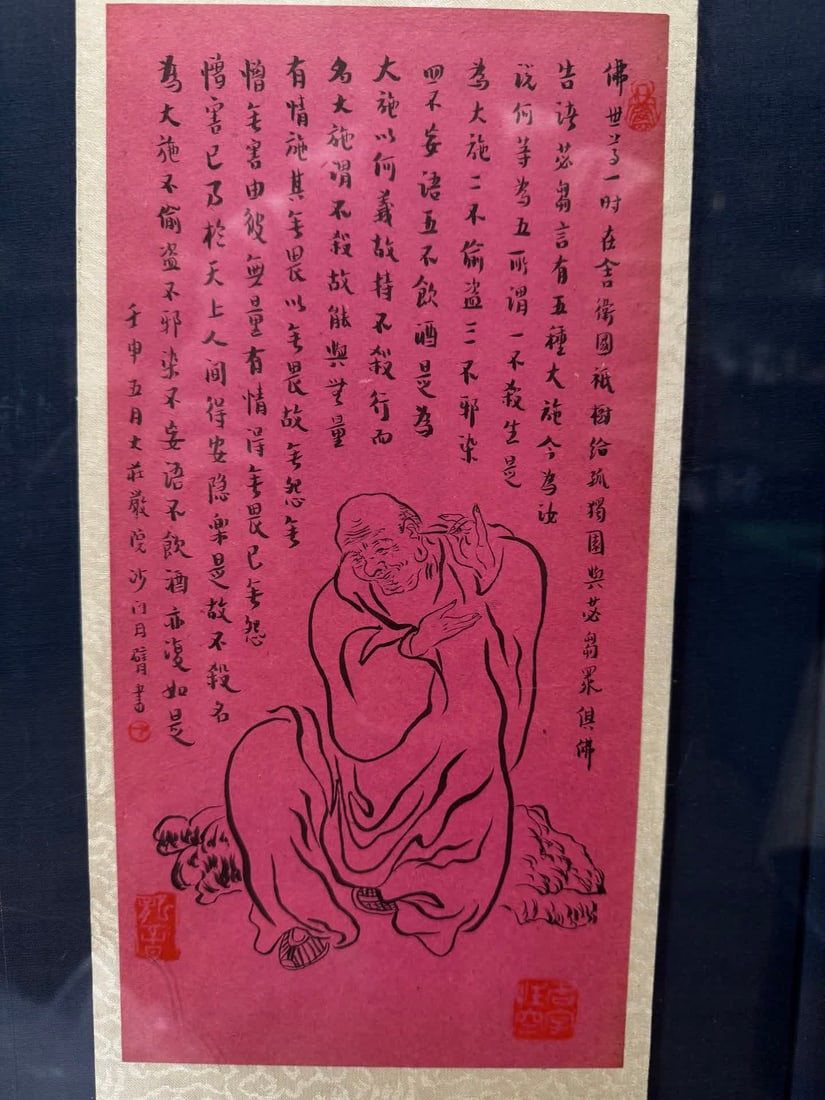 佛世尊一时在舍衛國祇樹給孤獨園與苾芻眾俱佛
告語苾芻言有五種大施今為汝
说何等為五所謂一不殺生是
為大施二不偷盗三不邪染
四不妄语五不飲酒是為
大施以何義故持不殺行而
名大施謂不殺故能與無量
有情施其無畏以無畏故無怨無
憎無害由彼無量有情得無畏已無怨
憎害已乃於天上人间得安隐樂是故不殺名
為大施不偷盗不邪染不妄语不飲酒亦復如是
壬申五月大莊嚴院沙门日臂書